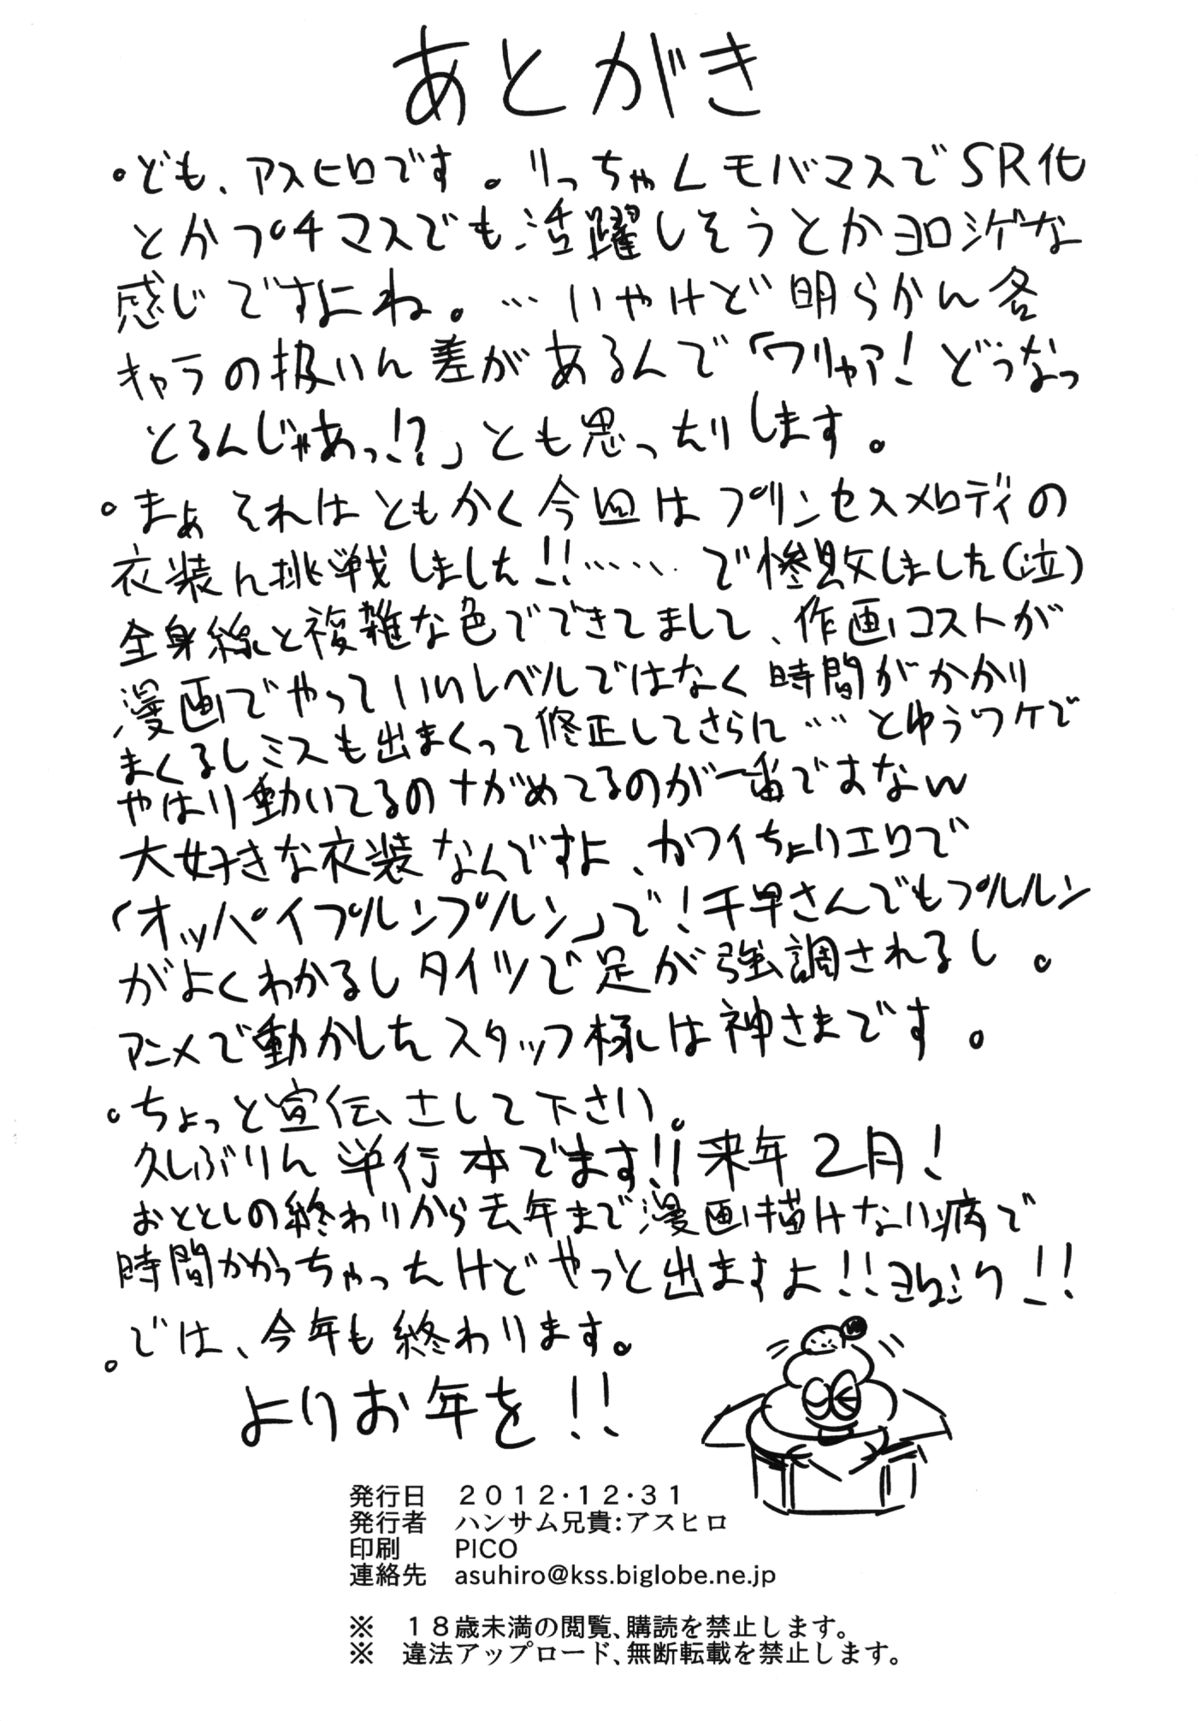 あとがき
。ども、アスヒロです。りっちゃんモバマスでSR化
とかプチマスでも活躍しそうとかヨロシゲな
感じですよね。…いやけど明らかん各
キャラの扱いん差があるんで「ワリャア!どうなっ
とるんじゃあっ!?」とも思ったりします。
。まぁそれはともかく今回はプリンセスメロディの
衣装ん挑戦しました!!……で惨敗しました(泣)
全身線と複雑な色でできてまして、作画コストが
漫画でやっていいレベルではなく時間がかかり
まくるしミスも出まくって修正してさらに……とゆうワケで
やはり動いてるのナがめてるのが一番ですなw
大好きな衣装なんですよ、カワイちょりエロで
「オッパイプルンプルン」で!千早さんでもプルルン
がよくわかるしタイツで足が強調されるし。
アニメで動かしたスタッフ様は神さまです。
。ちょっと宣伝さして下さい。
久しぶりん単行本でます!!来年2月!
おととしの終わりから去年まで漫画描けない病で
時間かかっちゃったけどやっと出ますよ!!ヨロシク!!
。では、今年も終わります。
よりお年を!!
発行日 2012・12・31
発行者 ハンサム兄貴:アスヒロ
印刷 PICO
連絡先 asuhiro@kss.biglobe.ne.jp
※ 18歳未満の閲覧、購読を禁止します。
※ 違法アップロード、無断転載を禁止します。